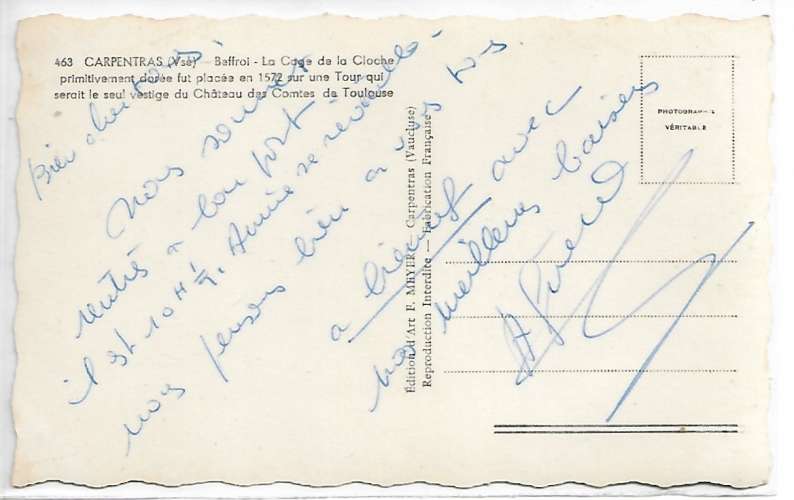 463 CARPENTRAS (Vse) - Beffroi - La Cage de la Cloche
primitivement dorée fut placée en 1572 sur une Tour qui
serait le seul vestige du Château des Comtes de Toulouse
PHOTOGRAPHIE
VÉRITABLE
Édition d'Art F. MEYER, Carpentras (Vaucluse)
Reproduction Interdite — Fabrication Française
Bien chers tous
Nous sommes
rentrés a bon port
il est 10 H ½. Annie se réveille
nous pensons bien a vous
a bientôt avec
nos meilleurs baisers